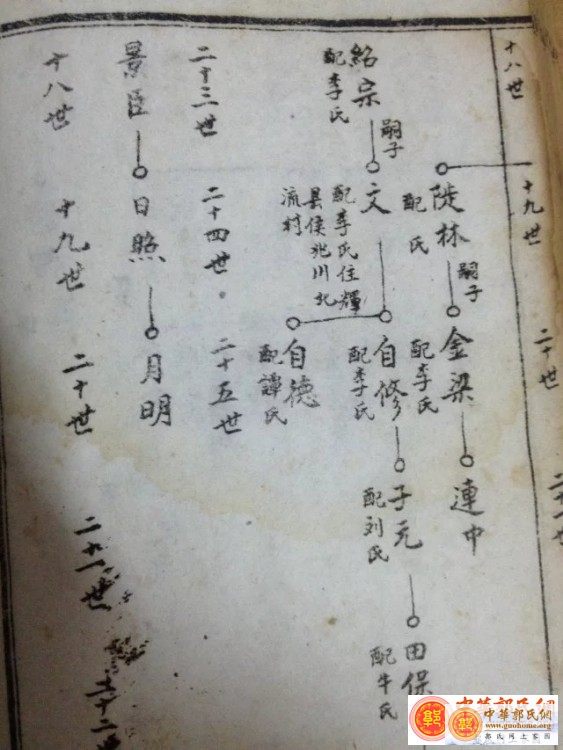 十八世
十九世
二十世
陡林
配 氏
嗣子
金梁
配李氏
連中
紹宗
配李氏
嗣子
文
配李氏住輝
县侯兆川北
流村
自修
配李氏
子元
配刘氏
田保
配牛氏
自德
配譚氏
二十三世
二十四世
二十五世
景臣
日照
月明
十八世
十九世
二十世
二十一世
二十二
中華郭氏網
www.guohome.org
郭氏网上家园